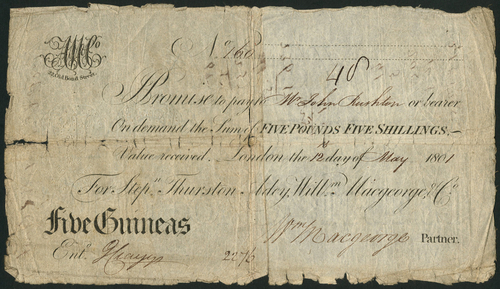 No. 266
Old Bond Street
48
I Promise to pay to Mr. John Rushton or bearer
On demand the Sum of FIVE POUNDS FIVE SHILLINGS.
Value received. London the 12 day of May 1801
For Stepn. Thurston Adey, Willm. Macgeorge, & Co.
Five Guineas
Wm. Macgeorge Partner.
Ent.